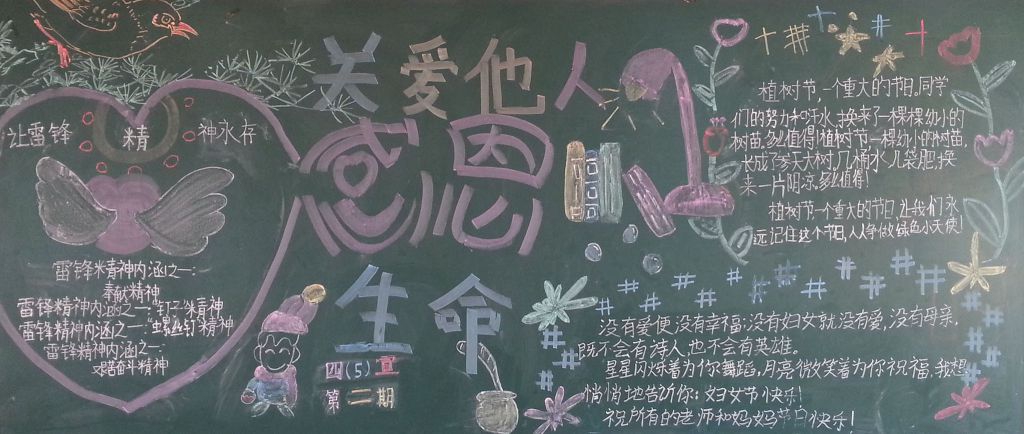 关爱他人
感恩
心
生命
四(5)宣
第二期
让雷锋 精 神永存
雷锋精神内涵之一:
奉献精神
雷锋精神内涵之一:钉子精神
雷锋精神内涵之一:螺丝钉精神
雷锋精神内涵之一:
艰苦奋斗精神
植树节,一个重大的节日。同学
们的努力和汗水,换来了一棵棵幼小的
树苗,多么值得!植树节一棵幼小的树苗,
长成了参天大树,几桶水,几袋肥,换
来一片阴凉,多么值得!
植树节一个重大的节日,让我们永
远记住这个节日,人人争做绿色小天使!
没有爱便没有幸福;没有妇女就没有爱,没有母亲,
既不会有诗人,也不会有英雄。
星星闪烁着为你舞蹈,月亮微笑着为你祝福,我想
悄悄地告诉你:妇女节快乐!
祝所有的老师和妈妈节日快乐!